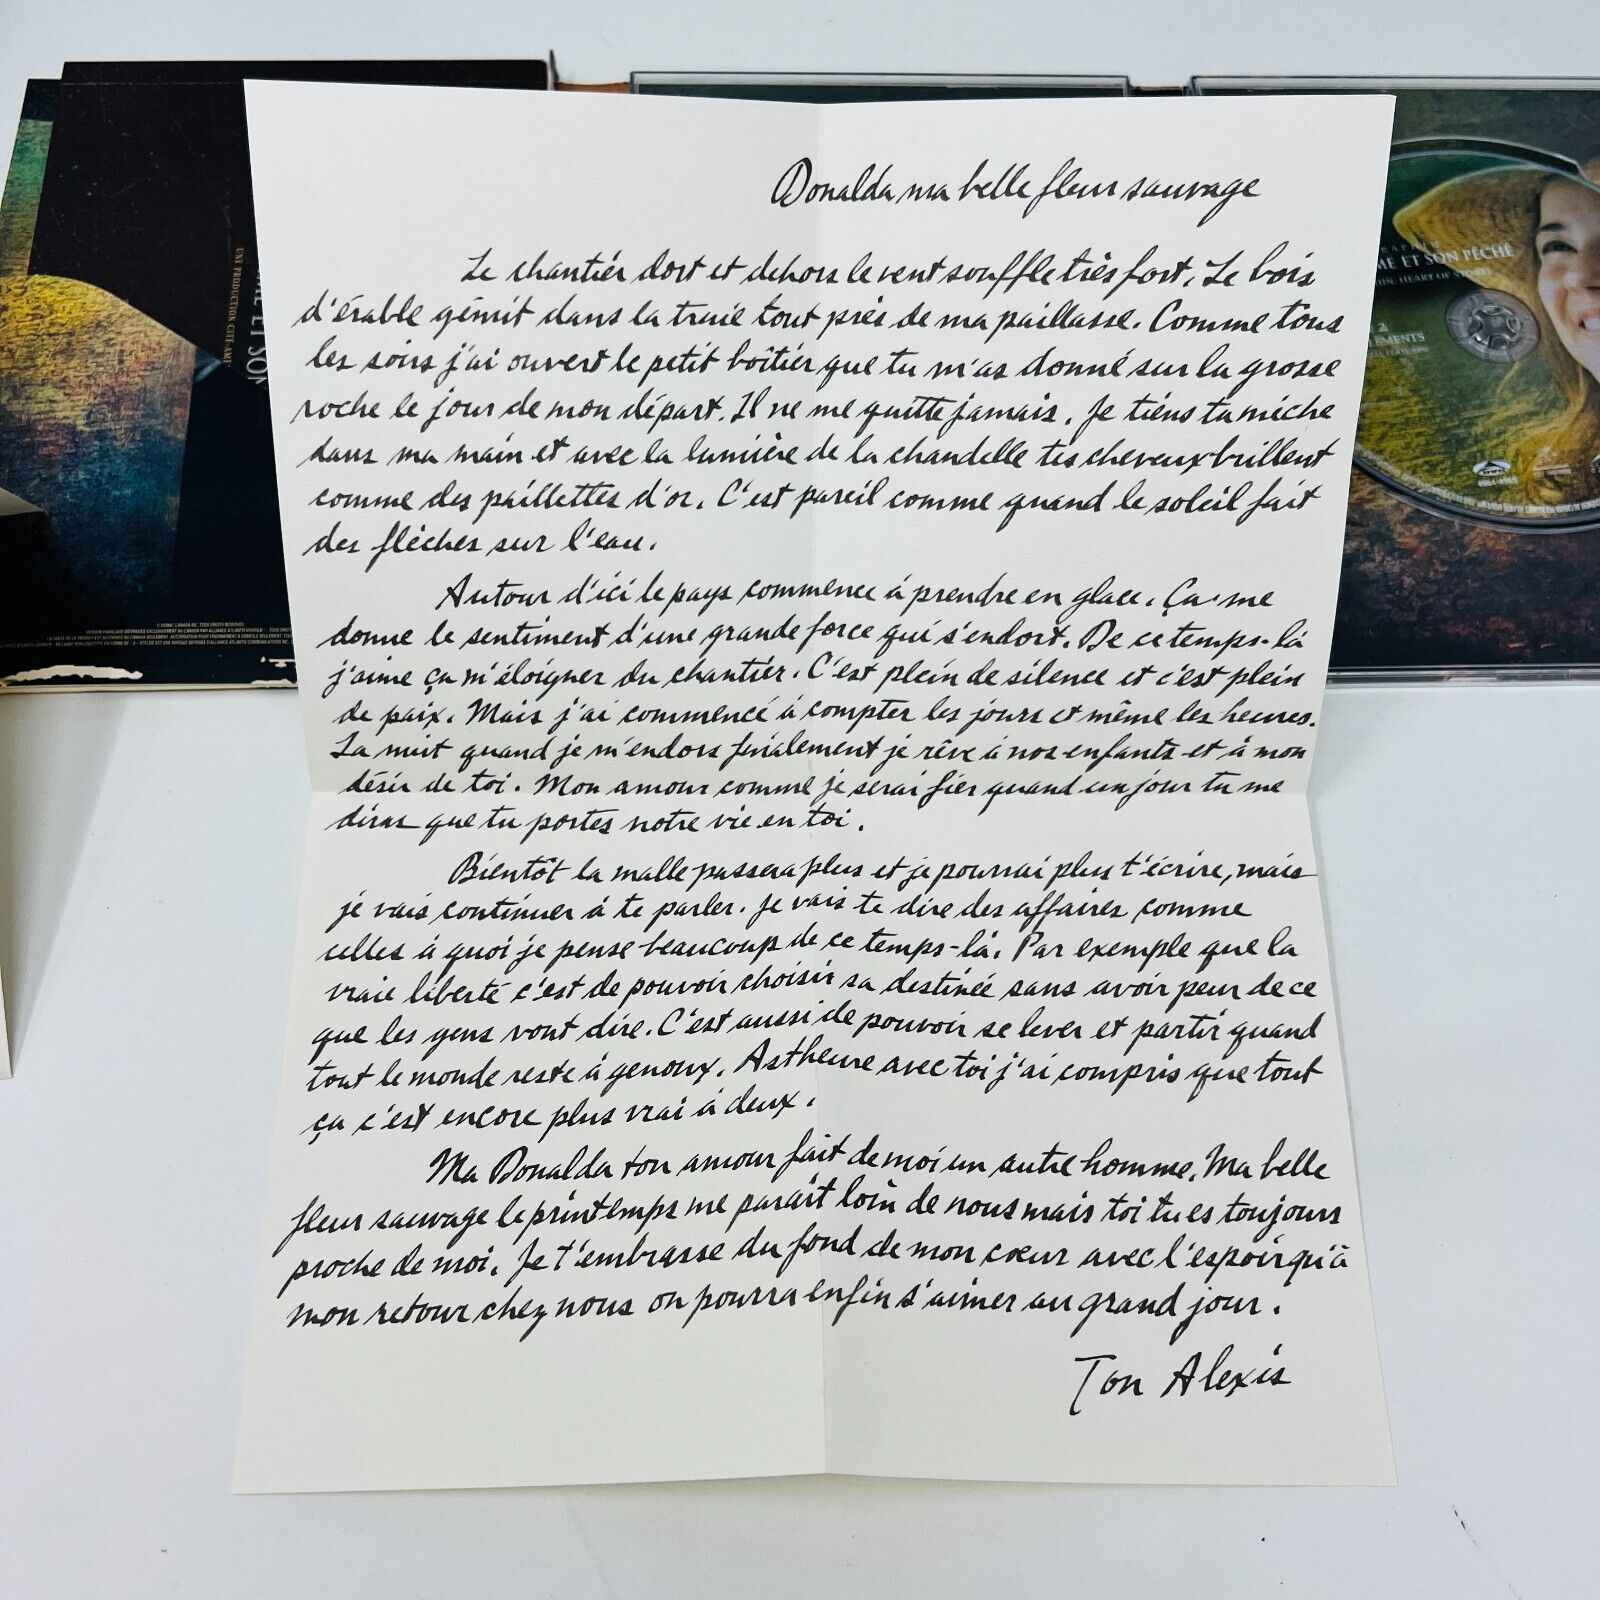 Donalda ma belle fleur sauvage
Le chantier dort et dehors le vent souffle très fort. Le bois
d'érable gémit dans la truie tout près de ma paillasse. Comme tous
les soirs j'ai ouvert le petit boîtier que tu m'as donné sur la grosse
roche le jour de mon départ. Il ne me quitte jamais. Je tiens ta mèche
dans ma main et avec la lumière de la chandelle tes cheveux brillent
comme des paillettes d'or. C'est pareil comme quand le soleil fait
des flèches sur l'eau.
Autour d'ici le pays commence à prendre en glace. Ça me
donne le sentiment d'une grande force qui s'endort. De ce temps-là
j'aime ça m'éloigner du chantier. C'est plein de silence et c'est plein
de paix. Mais j'ai commencé à compter les jours et même les heures.
La nuit quand je m'endors finalement je rêve à nos enfants et à mon
désir de toi. Mon amour comme je serai fier quand un jour tu me
diras que tu portes notre vie en toi.
Bientôt la malle passera plus et je pourrai plus t'écrire, mais
je vais continuer à te parler. Je vais te dire des affaires comme
celles à quoi je pense beaucoup de ce temps-là. Par exemple que la
vraie liberté c'est de pouvoir choisir sa destinée sans avoir peur de ce
que les gens vont dire. C'est aussi de pouvoir se lever et partir quand
tout le monde reste à genoux. Astheure avec toi j'ai compris que tout
ça c'est encore plus vrai à deux.
Ma Donalda ton amour fait de moi un autre homme. Ma belle
fleur sauvage le printemps me paraît loin de nous mais toi tu es toujours
proche de moi. Je t'embrasse du fond de mon cœur avec l'espoir qu'à
mon retour chez nous on pourra enfin s'aimer au grand jour.
Ton Alexis
ME ET SON PÉCHÉ
UNE PRODUCTION CITÉ-AMÉ
ET SON